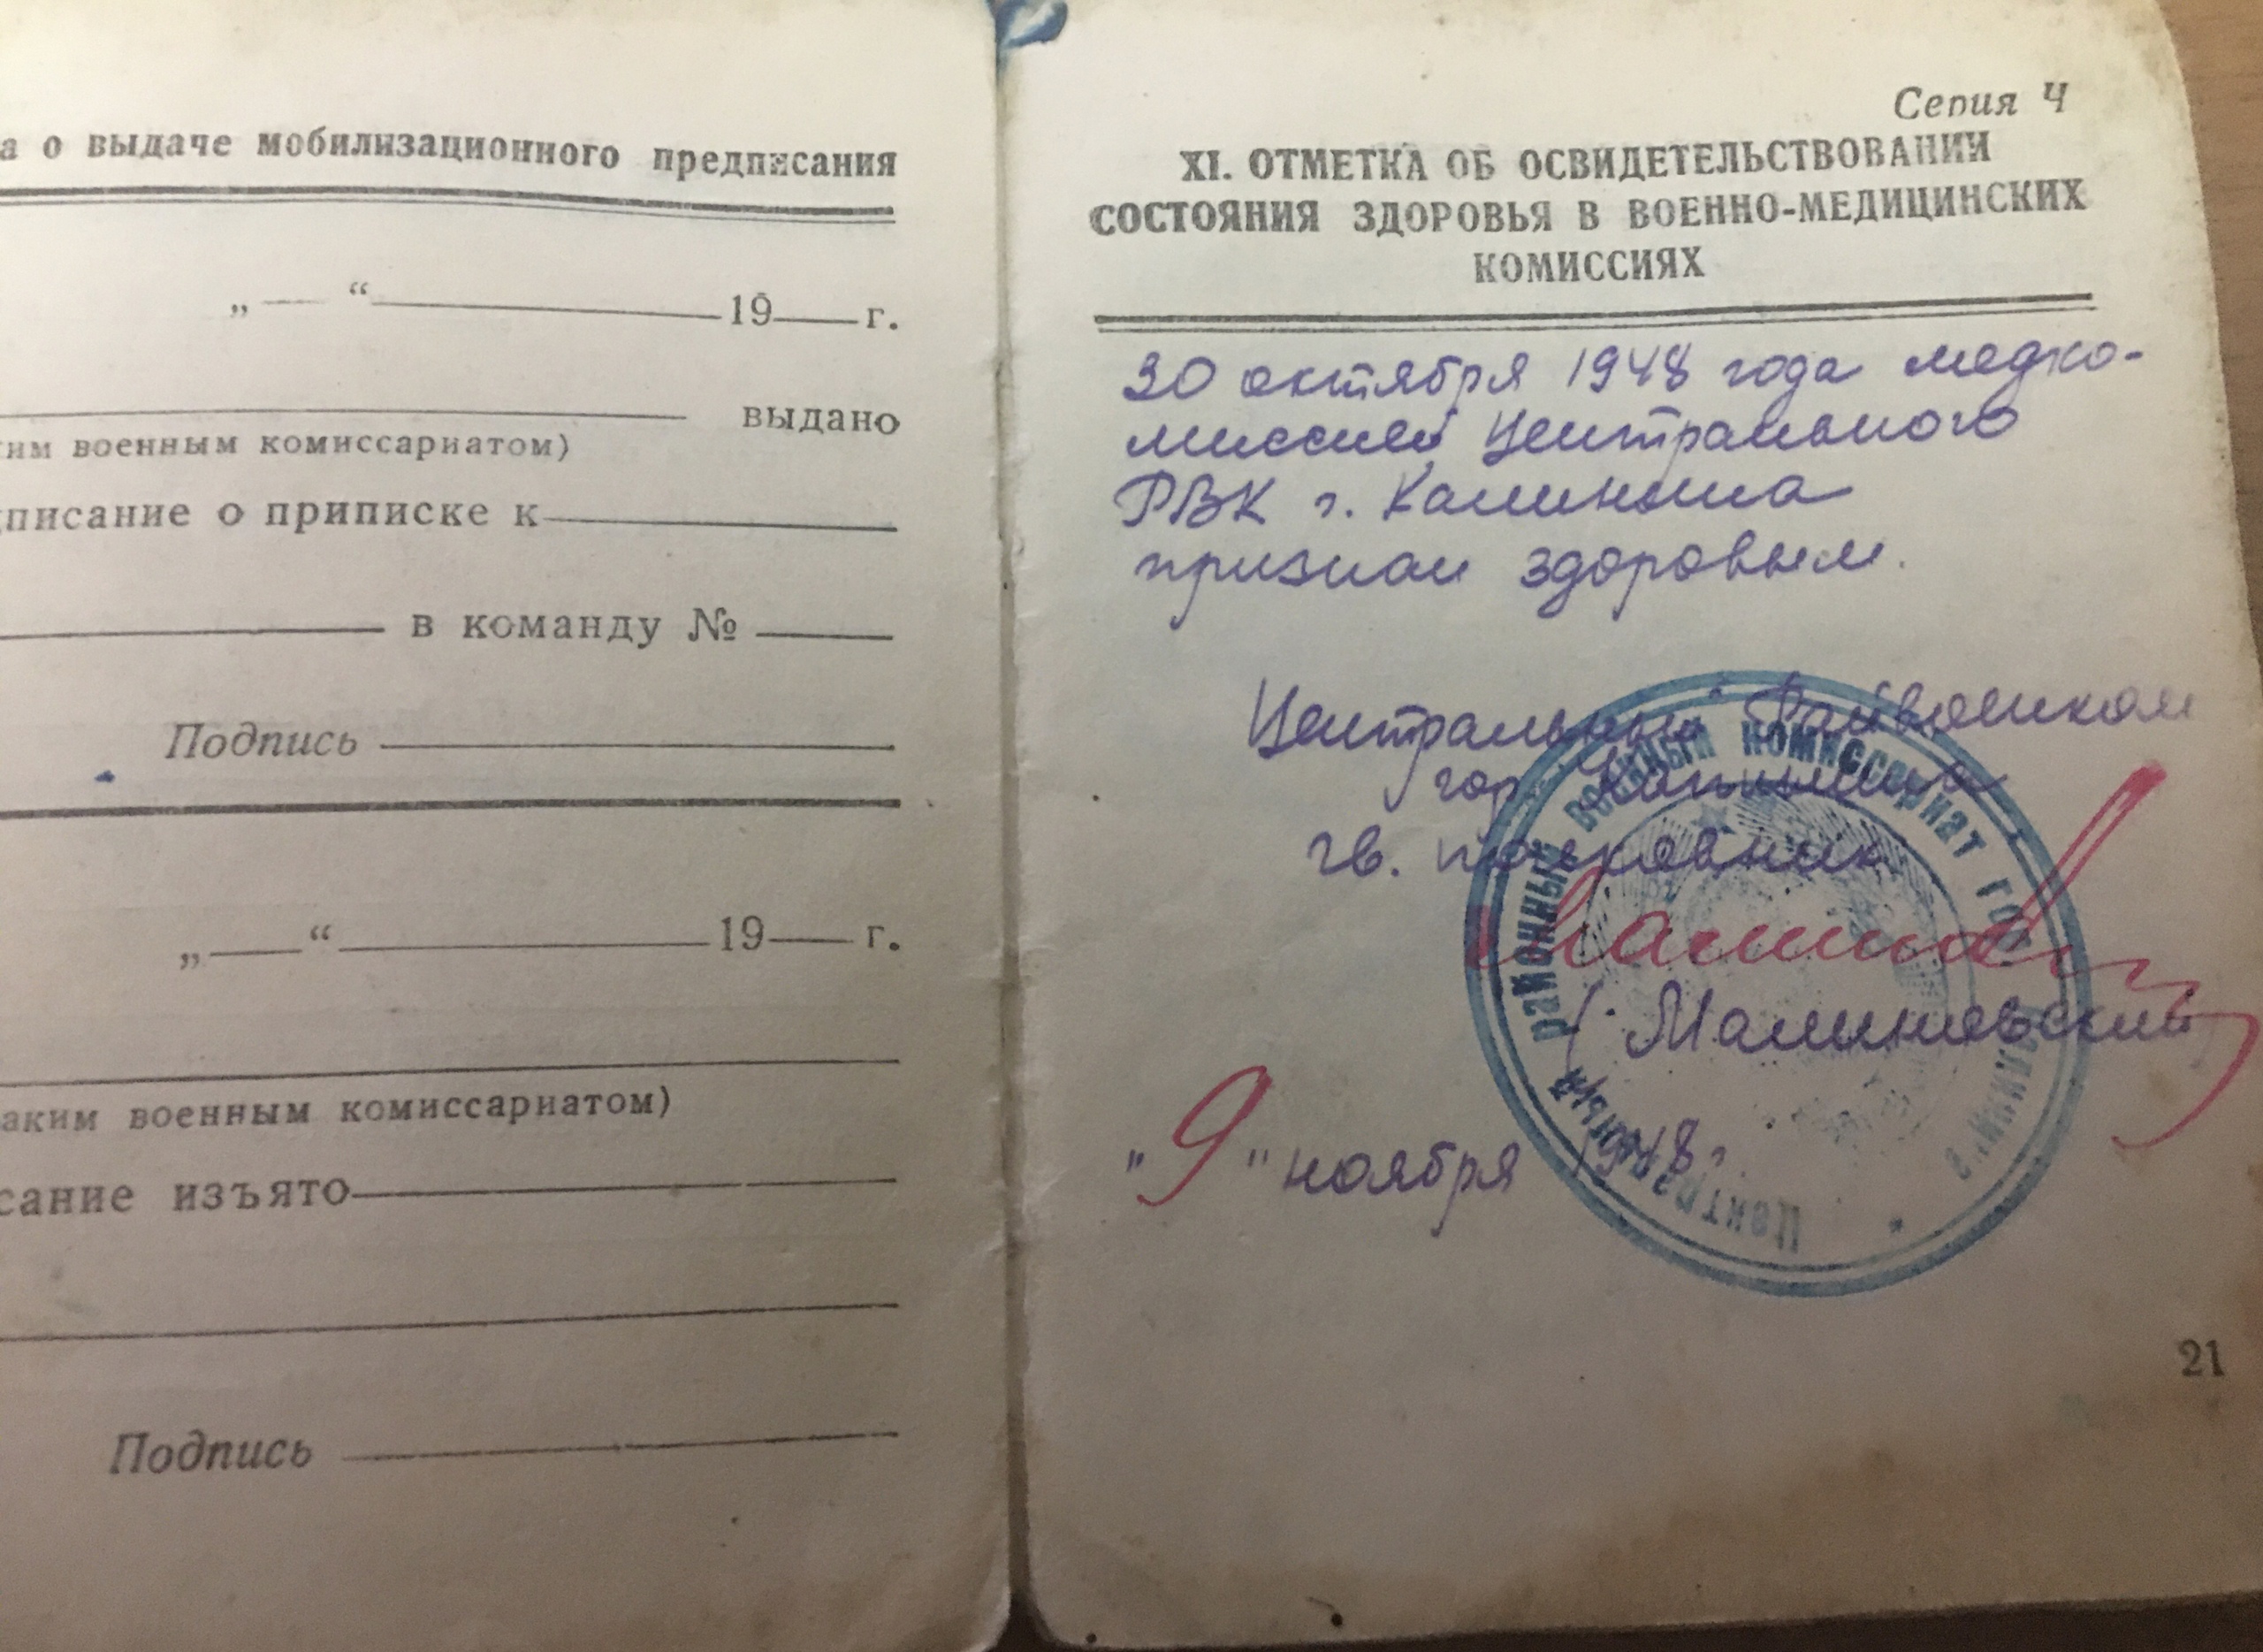 а о выдаче мобилизационного предписания
„ — “ 19 г.
выдано
им военным комиссариатом)
писание о приписке к
в команду №
Подпись
„ — “ 19 г.
аким военным комиссариатом)
сание изъято
Подпись
Серия Ч
XI. ОТМЕТКА ОБ ОСВИДЕТЕЛЬСТВОВАНИИ
СОСТОЯНИЯ ЗДОРОВЬЯ В ВОЕННО-МЕДИЦИНСКИХ
КОМИССИЯХ
30 октября 1948 года медко-
миссией Центрального
РВК г. Калинина
признан здоровым.
Центральный Райвоенком
гор. Калинина
гв. полковник
(Малиновский
"9" ноября 1948 г.
Центральный районный военный комиссариат гор. Калинина
21